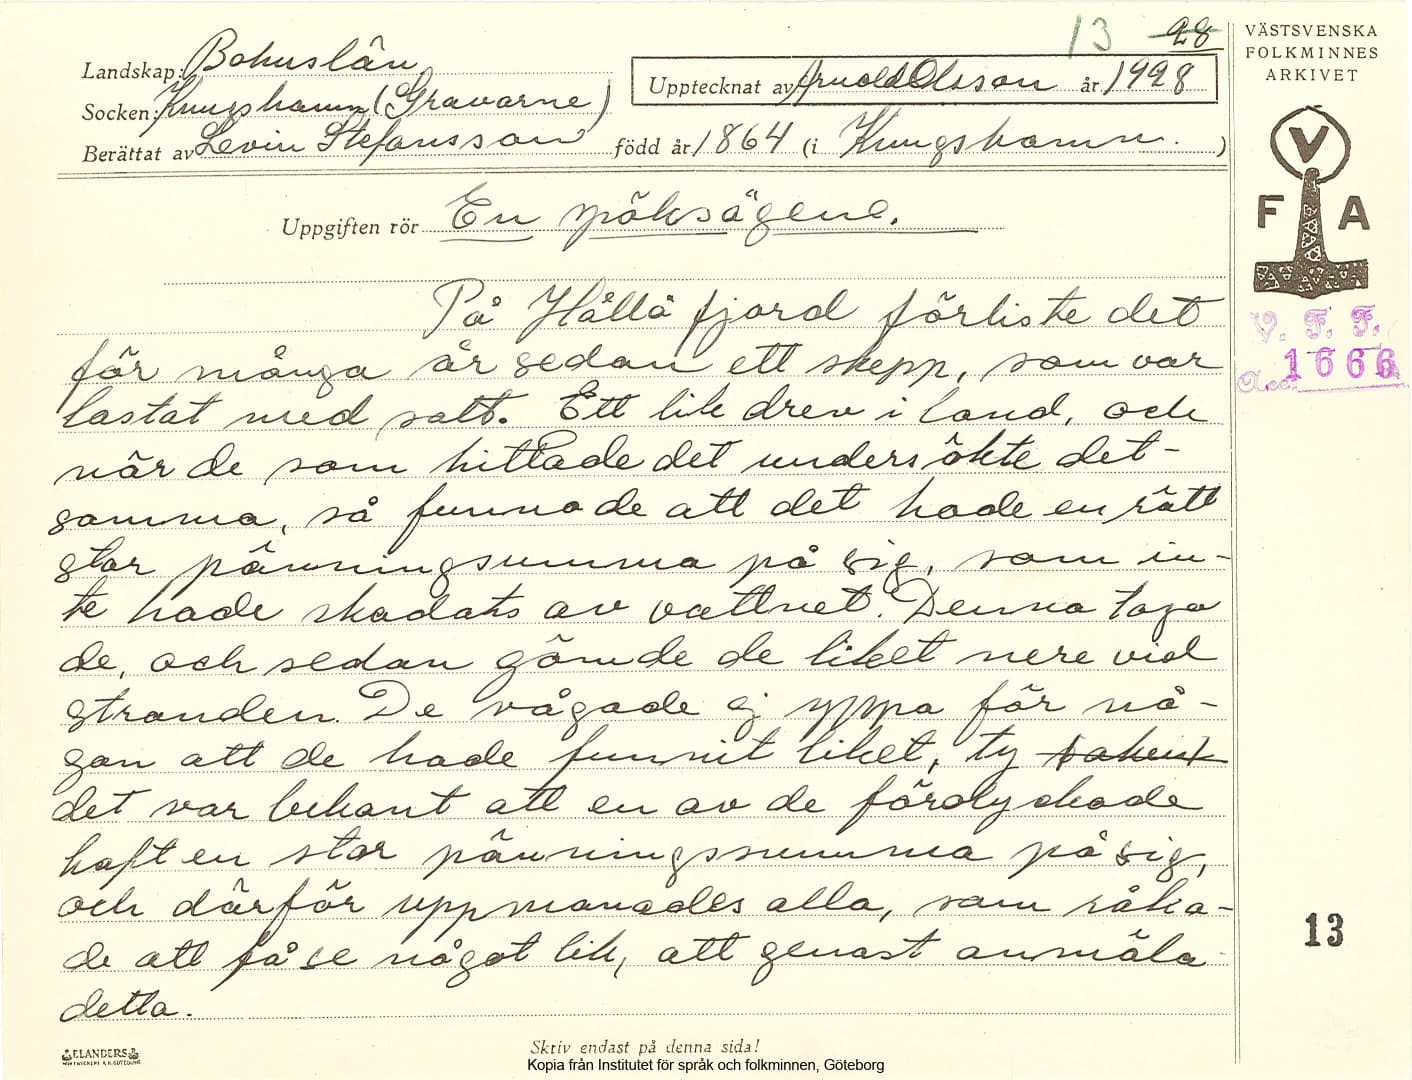 13 28
VÄSTSVENSKA
FOLKMINNES
ARKIVET
Landskap: Bohuslän
Upptecknat av Arnold Olsson år 1928
Socken: Kungshamn (Gravarne)
Berättat av Levin Stefansson född år 1864 (i Kungshamn. )
V
F A
Uppgiften rör En spöksägene.
På Hållö fjord förliste det
för många år sedan ett skepp, som var
lastat med salt. Ett lik drev i land, och
när de som hittade det undersökte det-
samma, så funno de att det hade en rätt
stor pänningsumma på sig, som in-
te hade skadats av vattnet. Denna togo
de, och sedan gömde de liket nere vid
stranden. De vågade ej yppa för nå-
gon att de hade funnit liket, ty saken
det var bekant att en av de fördlyckade
haft en stor pänningssumma på sig,
och därför uppmanades alla, som råka-
de att få se något lik, att genast anmäla
detta.
V. F. F.
1666
13
ELANDERS
Skriv endast på denna sida!
Kopia från Institutet för språk och folkminnen, Göteborg